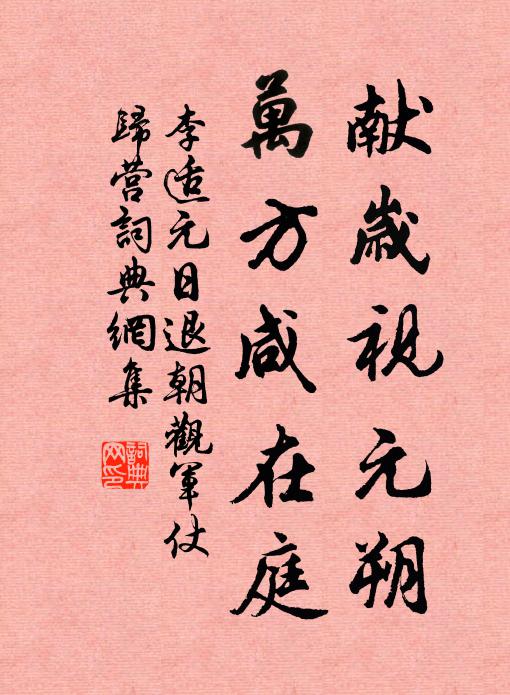 献歲視元朔
萬方咸在庭
李适元日退朝觀軍仗
歸营詞典網集
詞典
网印